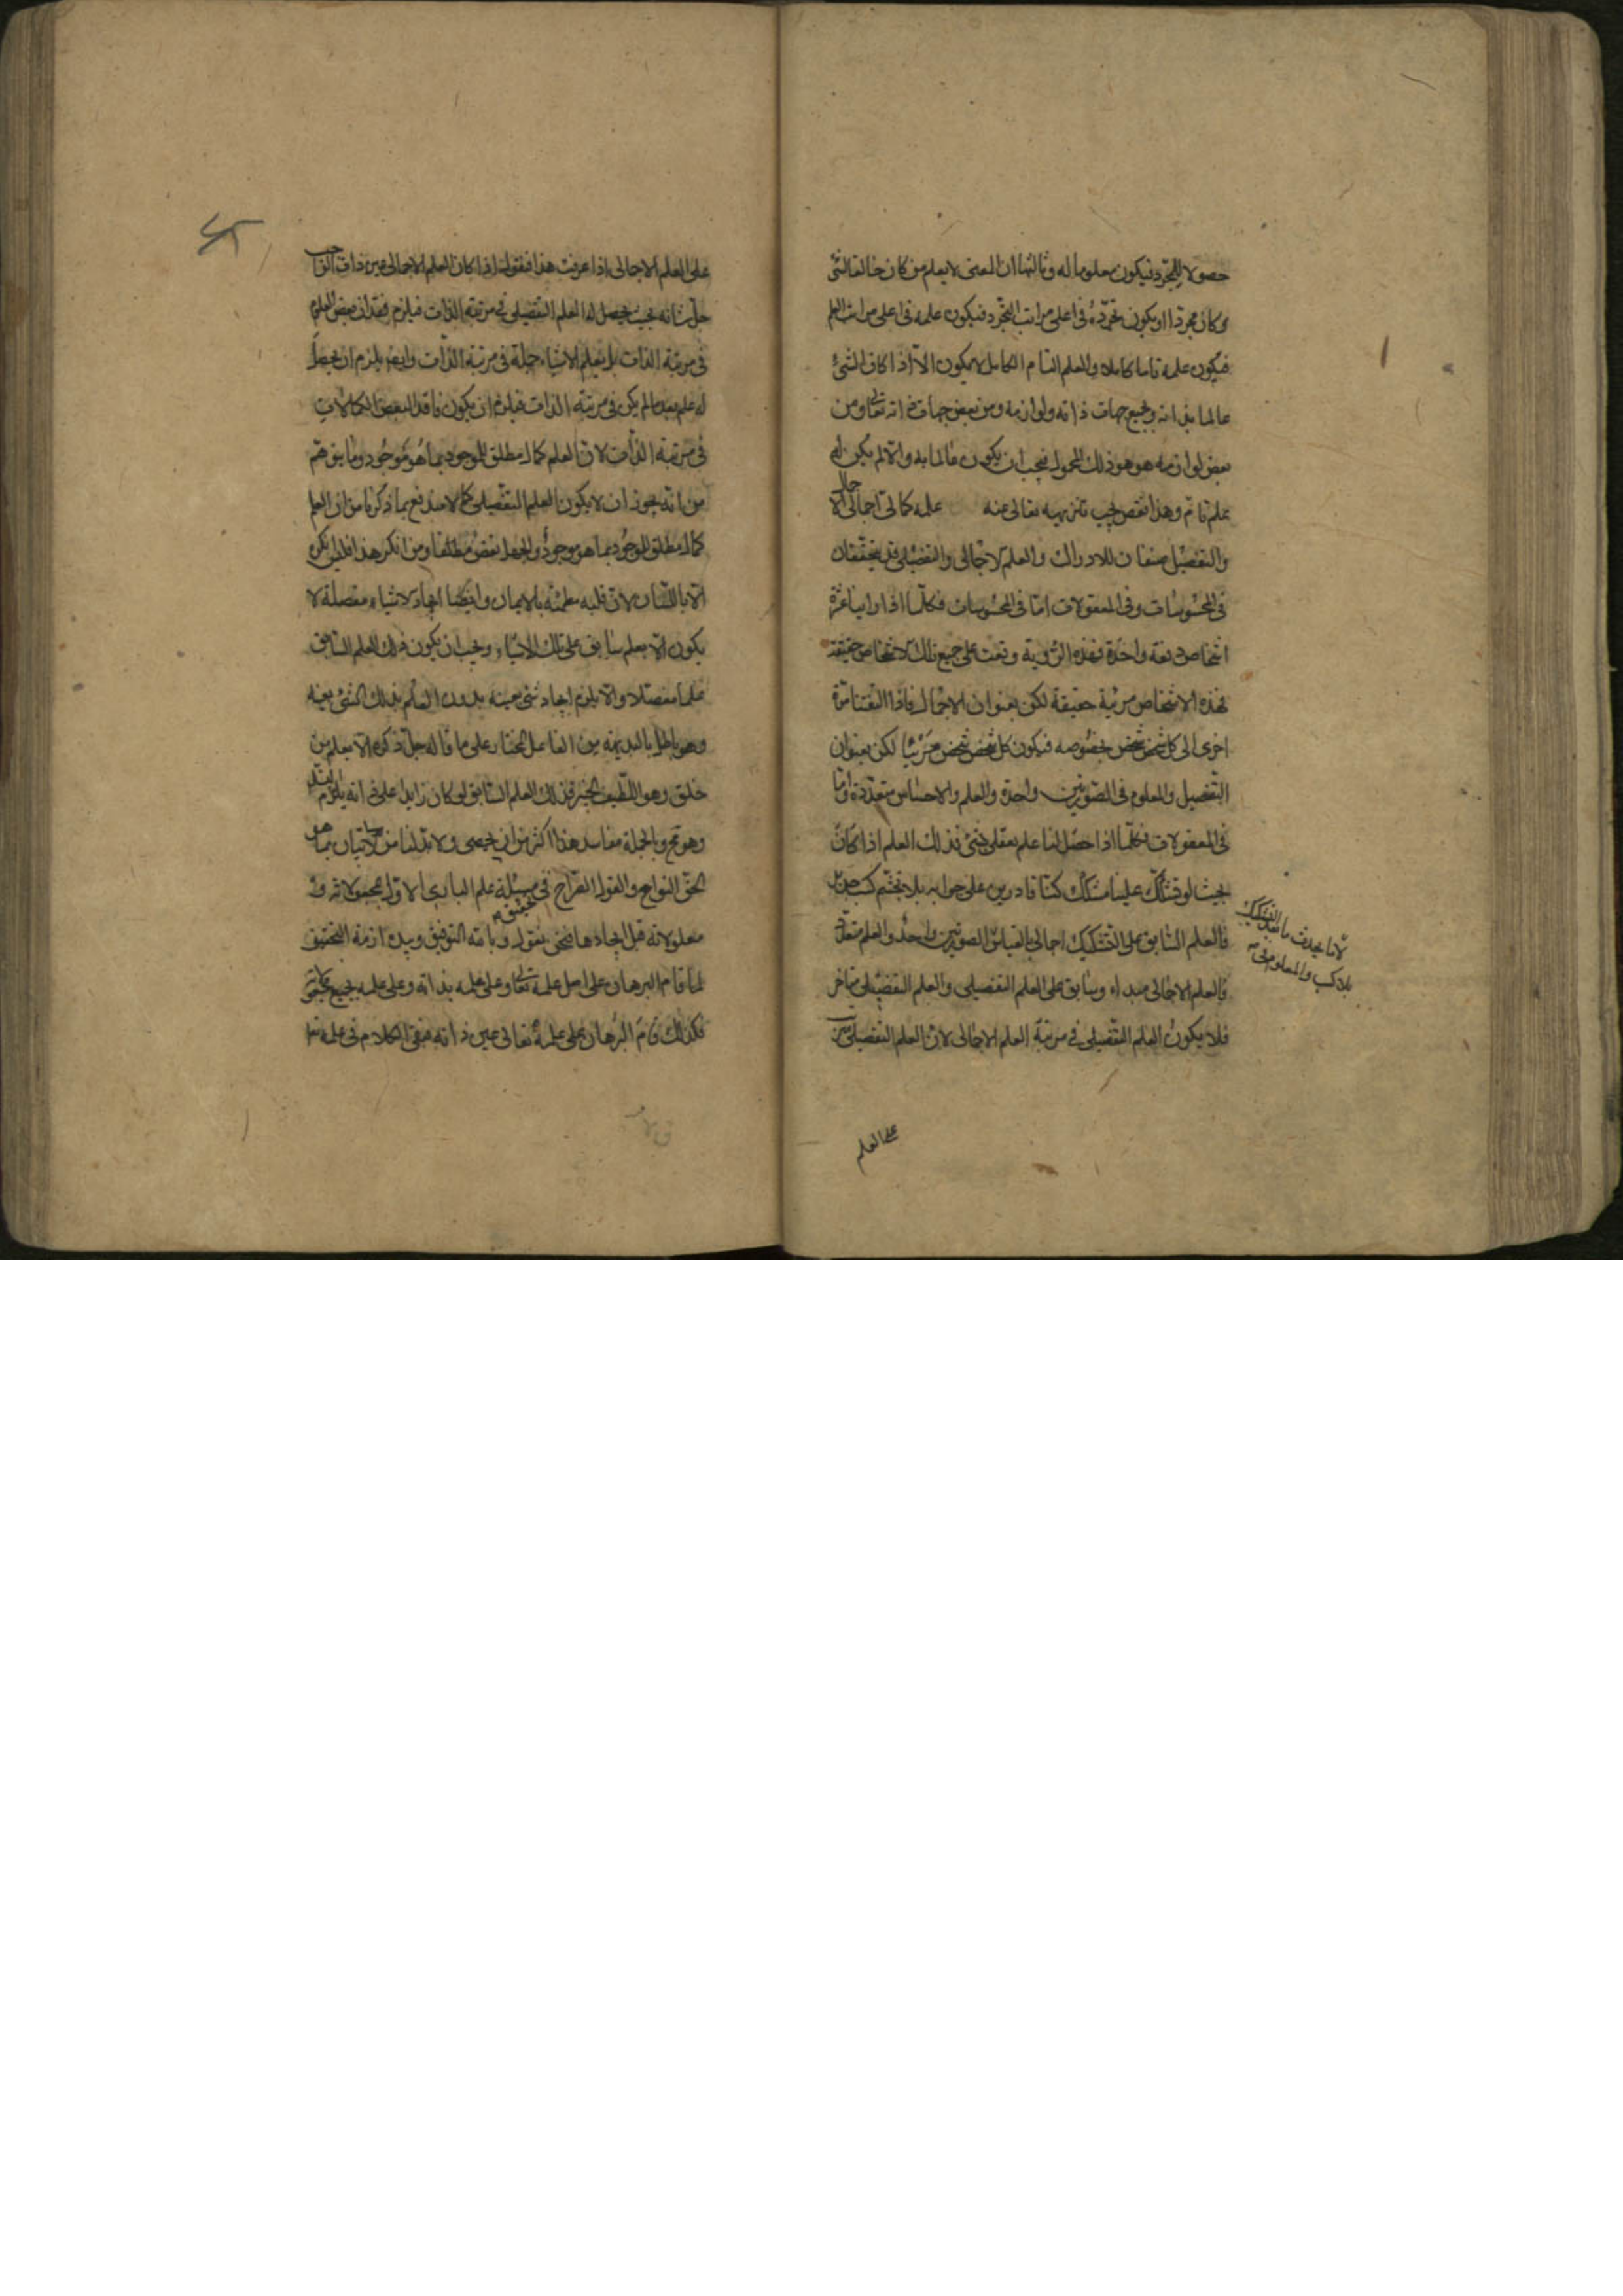 حصولا للمجرد فيكون معلوما له وثالثها ان المعنى لا يعلم من كان خالقا لشئ
وكان مجردا او يكون تجرده في اعلى مراتب التجرد فيكون علمه في اعلى مراتب العلم
فيكون علمه تاما كاملا والعلم التام الكامل لا يكون الا اذا كان الشئ
عالما بذاته وبجميع جهات ذاته ولوازمه ومن بعض جهات ذاته تعالى ومن
بعض لوازمه هو هو ذلك المجعول فيجب ان يكون عالما به والا لم يكن له
علم تام وهذا نقص يجب تنزيهه تعالى عنه علمه كمالى اجمالى الا
جمال
والتفصيل صفتان للادراك والعلم الاجمالى والتفصيلى قد يتحققان
فى المحسوسات وفى المعقولات اما فى المحسوسات فكلما اذا راينا عشرة
اشخاص دفعة واحدة فهذه الرؤية وقعت على جميع تلك الاشخاص حقيقة
فهذه الاشخاص مرئية حقيقة لكن بعنوان الاجمال فاذا التفتنا مرة
اخرى الى كل شخص شخص بخصوصه فيكون كل شخص شخص مرئيا لكن بعنوان
التفصيل والمعلوم فى الصورتين واحدة والعلم والاحساس متعددة واما
فى المعقولات فكلما اذا حصل لنا علم بعقلى شئ فذلك العلم اذا كان
بحيث لو شكك علينا مشكك كنا قادرين على جوابه بلا تجشم كسب جديد
فالعلم السابق على التشكيك اجمالى بالقياس الصورتين واحد والعلم متعدد
لانا يحدث ما بعد التشكيك
بلا كسب والمعلوم فى
فالعلم الاجمالى مبداء وسابق على العلم التفصيلى والعلم التفصيلى متاخر
فلا يكون العلم التفصيلى فى مرتبة العلم الاجمالى لان العلم التفصيلى
على العلم
على العلم الاجمالى اذا عرفت هذا فنقول اذا كان العلم الاجمالى عين ذات الواجب
جل شانه بحيث يحصل له العلم التفصيلى فى مرتبة الذات فيلزم فقدان بعض العلوم
فى مرتبة الذات بل بعلم الاشياء جملة فى مرتبة الذات وايضا يلزم ان يحصل
له علم بعد ما لم يكن فى مرتبة الذات فيلزم ان يكون فاقدا لبعض الكمالات
فى مرتبة الذات لان العلم كمال مطلق للموجود بما هو موجود وما يتوهم
من انه يجوز ان لا يكون العلم التفصيلى كمالا مندفع بما ذكرنا من ان العلم
كمال مطلق للموجود بما هو موجود والجهل نقص مطلقا ومن انكر هذا فلم ينكره
الا باللسان لان قلبه مطمئنة بالايمان وايضا ايجاد الاشياء مفصلة لا
يكون الا بعلم سابق على تلك الاشياء ويجب ان يكون ذلك العلم السابق
علما مفصلا والا يلزم ايجاد شئ بعينه بدون العلم بذلك الشئ بعينه
وهو باطل بالبديهه من الفاعل المختار على ما قال جل ذكره الا يعلم من
خلق وهو اللطيف الخبير فذلك العلم السابق لو كان زايدا على ذاته يلزم
وهو مح وبالجملة مفاسد هذا اكثر من ان يحصى ولا بد لنا من الاتيان بما هو
الحق الواقع والقول القراح فى مسئلة علم البارى الاول بمجعولاته و
معلولاته قبل ايجادها فنحن نقول وبالله التوفيق وبيده ازمة التحقيق
تحقيق
لما قام البرهان على اصل علمه تعالى وعلى علمه بذاته وعلى علمه بجميع
فكذلك قام البرهان على علمه تعالى عين ذاته فبقى الكلام فى علمه